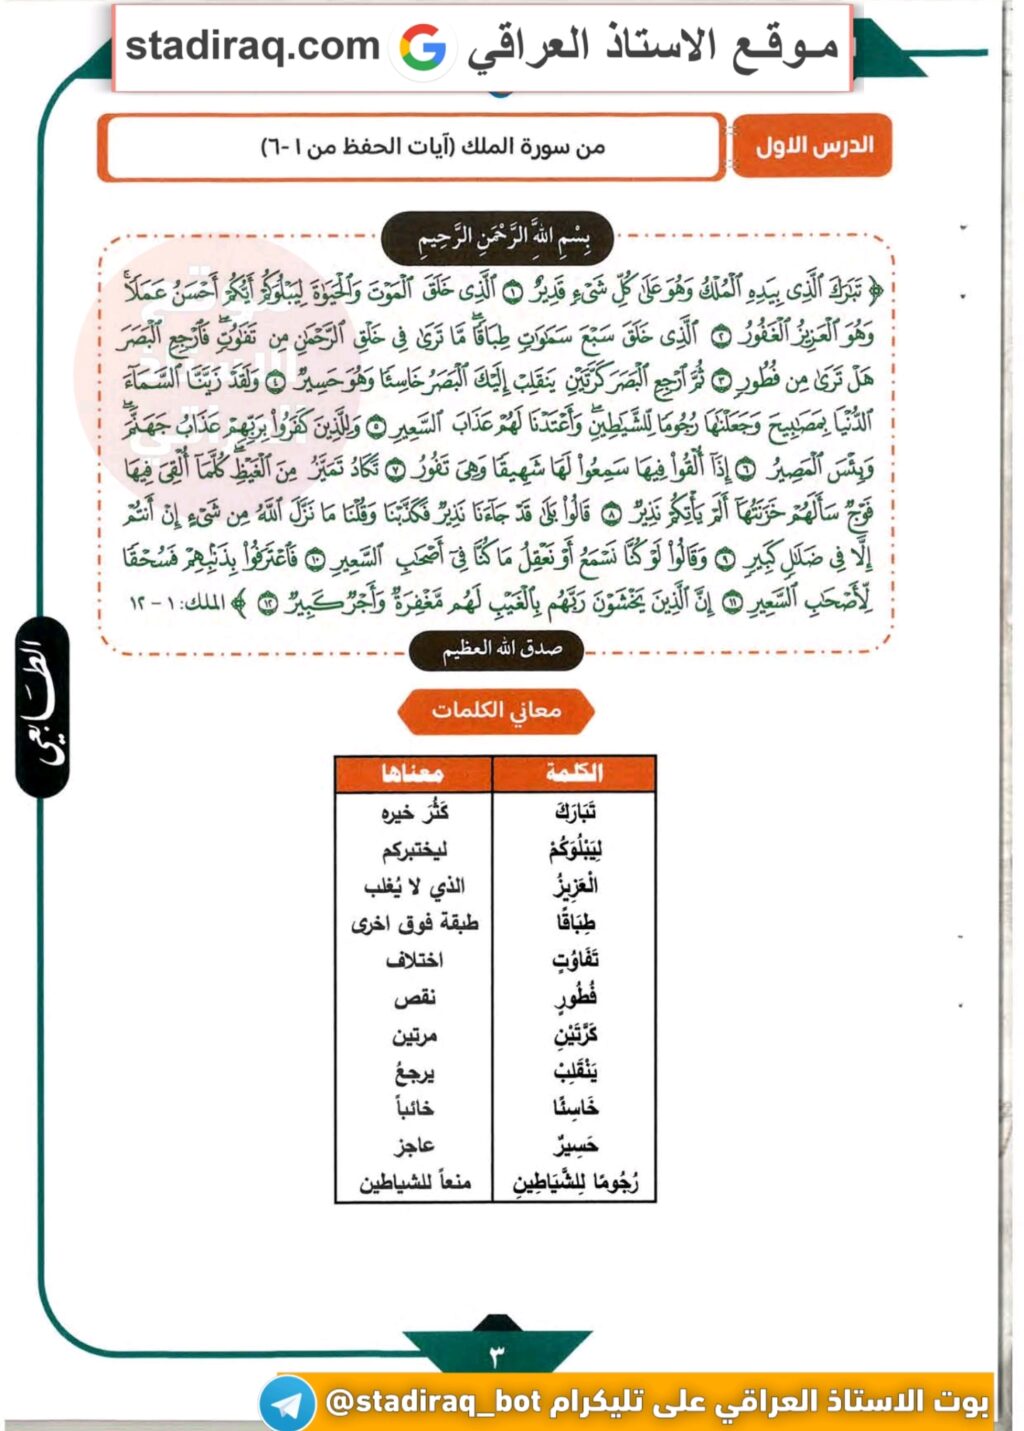 موقع الاستاذ العراقي stadiraq.com
الدرس الاول
من سورة الملك (آيات الحفظ من ١-٦)
بِسْمِ اللَّهِ الرَّحْمَنِ الرَّحِيمِ
﴿ تَبَٰرَكَ ٱلَّذِى بِيَدِهِ ٱلْمُلْكُ وَهُوَ عَلَىٰ كُلِّ شَىْءٍ قَدِيرٌ ١ ٱلَّذِى خَلَقَ ٱلْمَوْتَ وَٱلْحَيَوٰةَ لِيَبْلُوَكُمْ أَيُّكُمْ أَحْسَنُ عَمَلًا ۚ
وَهُوَ ٱلْعَزِيزُ ٱلْغَفُورُ ٢ ٱلَّذِى خَلَقَ سَبْعَ سَمَٰوَٰتٍ طِبَاقًا ۖ مَّا تَرَىٰ فِى خَلْقِ ٱلرَّحْمَٰنِ مِن تَفَٰوُتٍ ۖ فَٱرْجِعِ ٱلْبَصَرَ
هَلْ تَرَىٰ مِن فُطُورٍ ٣ ثُمَّ ٱرْجِعِ ٱلْبَصَرَ كَرَّتَيْنِ يَنقَلِبْ إِلَيْكَ ٱلْبَصَرُ خَاسِئًا وَهُوَ حَسِيرٌ ٤ وَلَقَدْ زَيَّنَّا ٱلسَّمَآءَ
ٱلدُّنْيَا بِمَصَٰبِيحَ وَجَعَلْنَٰهَا رُجُومًا لِّلشَّيَٰطِينِ ۖ وَأَعْتَدْنَا لَهُمْ عَذَابَ ٱلسَّعِيرِ ٥ وَلِلَّذِينَ كَفَرُوا۟ بِرَبِّهِمْ عَذَابُ جَهَنَّمَ ۖ
وَبِئْسَ ٱلْمَصِيرُ ٦ إِذَآ أُلْقُوا۟ فِيهَا سَمِعُوا۟ لَهَا شَهِيقًا وَهِىَ تَفُورُ ٧ تَكَادُ تَمَيَّزُ مِنَ ٱلْغَيْظِ ۖ كُلَّمَآ أُلْقِىَ فِيهَا
فَوْجٌ سَأَلَهُمْ خَزَنَتُهَآ أَلَمْ يَأْتِكُمْ نَذِيرٌ ٨ قَالُوا۟ بَلَىٰ قَدْ جَآءَنَا نَذِيرٌ فَكَذَّبْنَا وَقُلْنَا مَا نَزَّلَ ٱللَّهُ مِن شَىْءٍ إِنْ أَنتُمْ
إِلَّا فِى ضَلَٰلٍ كَبِيرٍ ٩ وَقَالُوا۟ لَوْ كُنَّا نَسْمَعُ أَوْ نَعْقِلُ مَا كُنَّا فِىٓ أَصْحَٰبِ ٱلسَّعِيرِ ١٠ فَٱعْتَرَفُوا۟ بِذَنۢبِهِمْ فَسُحْقًا
لِّأَصْحَٰبِ ٱلسَّعِيرِ ١١ إِنَّ ٱلَّذِينَ يَخْشَوْنَ رَبَّهُم بِٱلْغَيْبِ لَهُم مَّغْفِرَةٌ وَأَجْرٌ كَبِيرٌ ١٢ ﴾ الملك: ١ - ١٢
صدق الله العظيم
معاني الكلمات
الكلمة معناها
تَبَارَكَ كَثُرَ خيره
لِيَبْلُوَكُمْ ليختبركم
الْعَزِيزُ الذي لا يُغلب
طِبَاقًا طبقة فوق اخرى
تَفَاوُتٍ اختلاف
فُطُورٍ نقص
كَرَّتَيْنِ مرتين
يَنْقَلِبْ يرجعُ
خَاسِئًا خائباً
حَسِيرٌ عاجز
رُجُومًا لِلشَّيَاطِينِ منعاً للشياطين
الطابعي
٣
بوت الاستاذ العراقي على تليكرام @stadiraq_bot